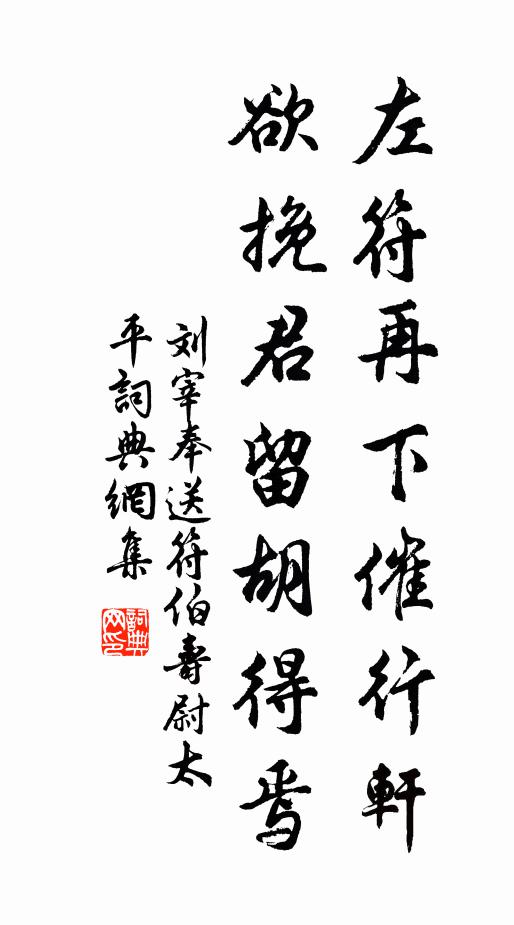 左符再下催行軒
欲挽君留胡得焉
刘宰奉送符伯壽尉太
平詞典網集
詞典
网印